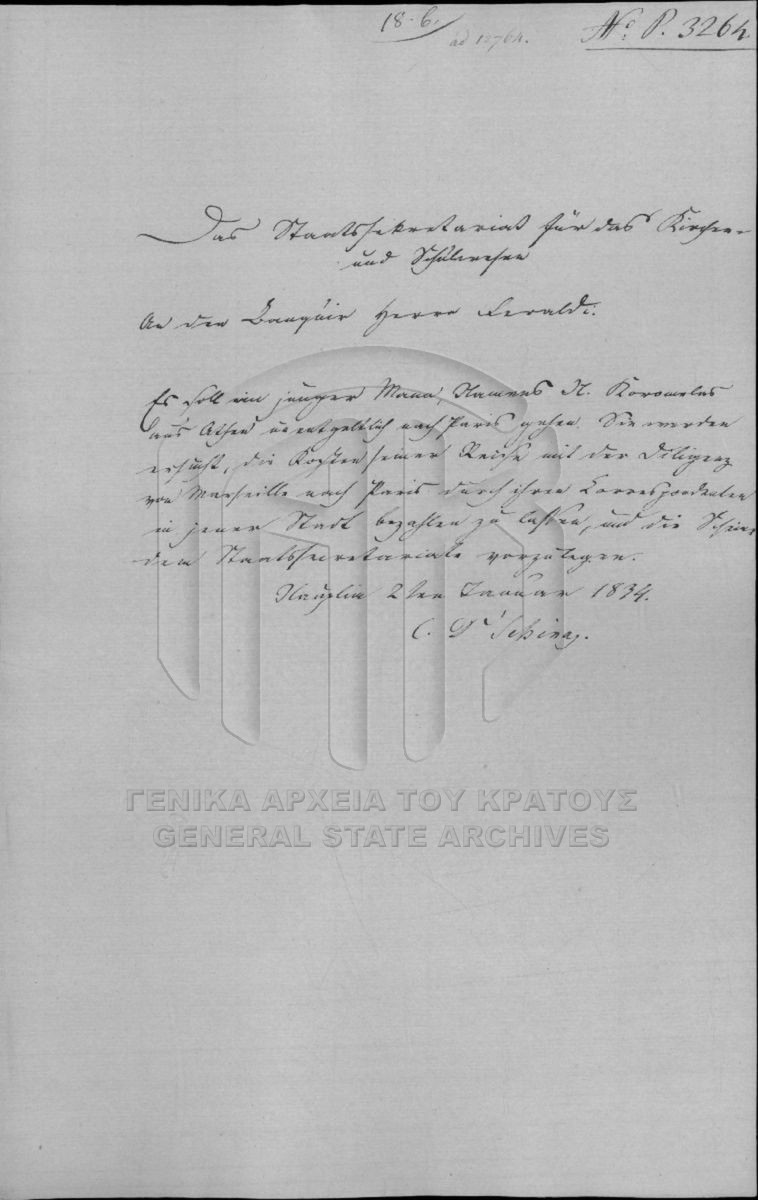 18-6.
ad 13764.
No: P. 3264
Das Staatssekretariat für das Kirchen-
und Schulwesen
An den Banquir Herrn Feraldi.
Es soll ein junger Mann, Namens A. Koromelas
aus Athen unentgeltlich nach Paris gehen. Sie werden
ersucht, die Kosten seiner Reise mit der Diligenz
von Marseille nach Paris durch ihren Correspondenten
in jener Stadt bezahlen zu lassen, und die Scheine
dem Staatssecretariate vorzulegen.
Nauplia 2ten Januar 1834.
C. D. Schinas.
ΓΕΝΙΚΑ ΑΡΧΕΙΑ ΤΟΥ ΚΡΑΤΟΥΣ
GENERAL STATE ARCHIVES